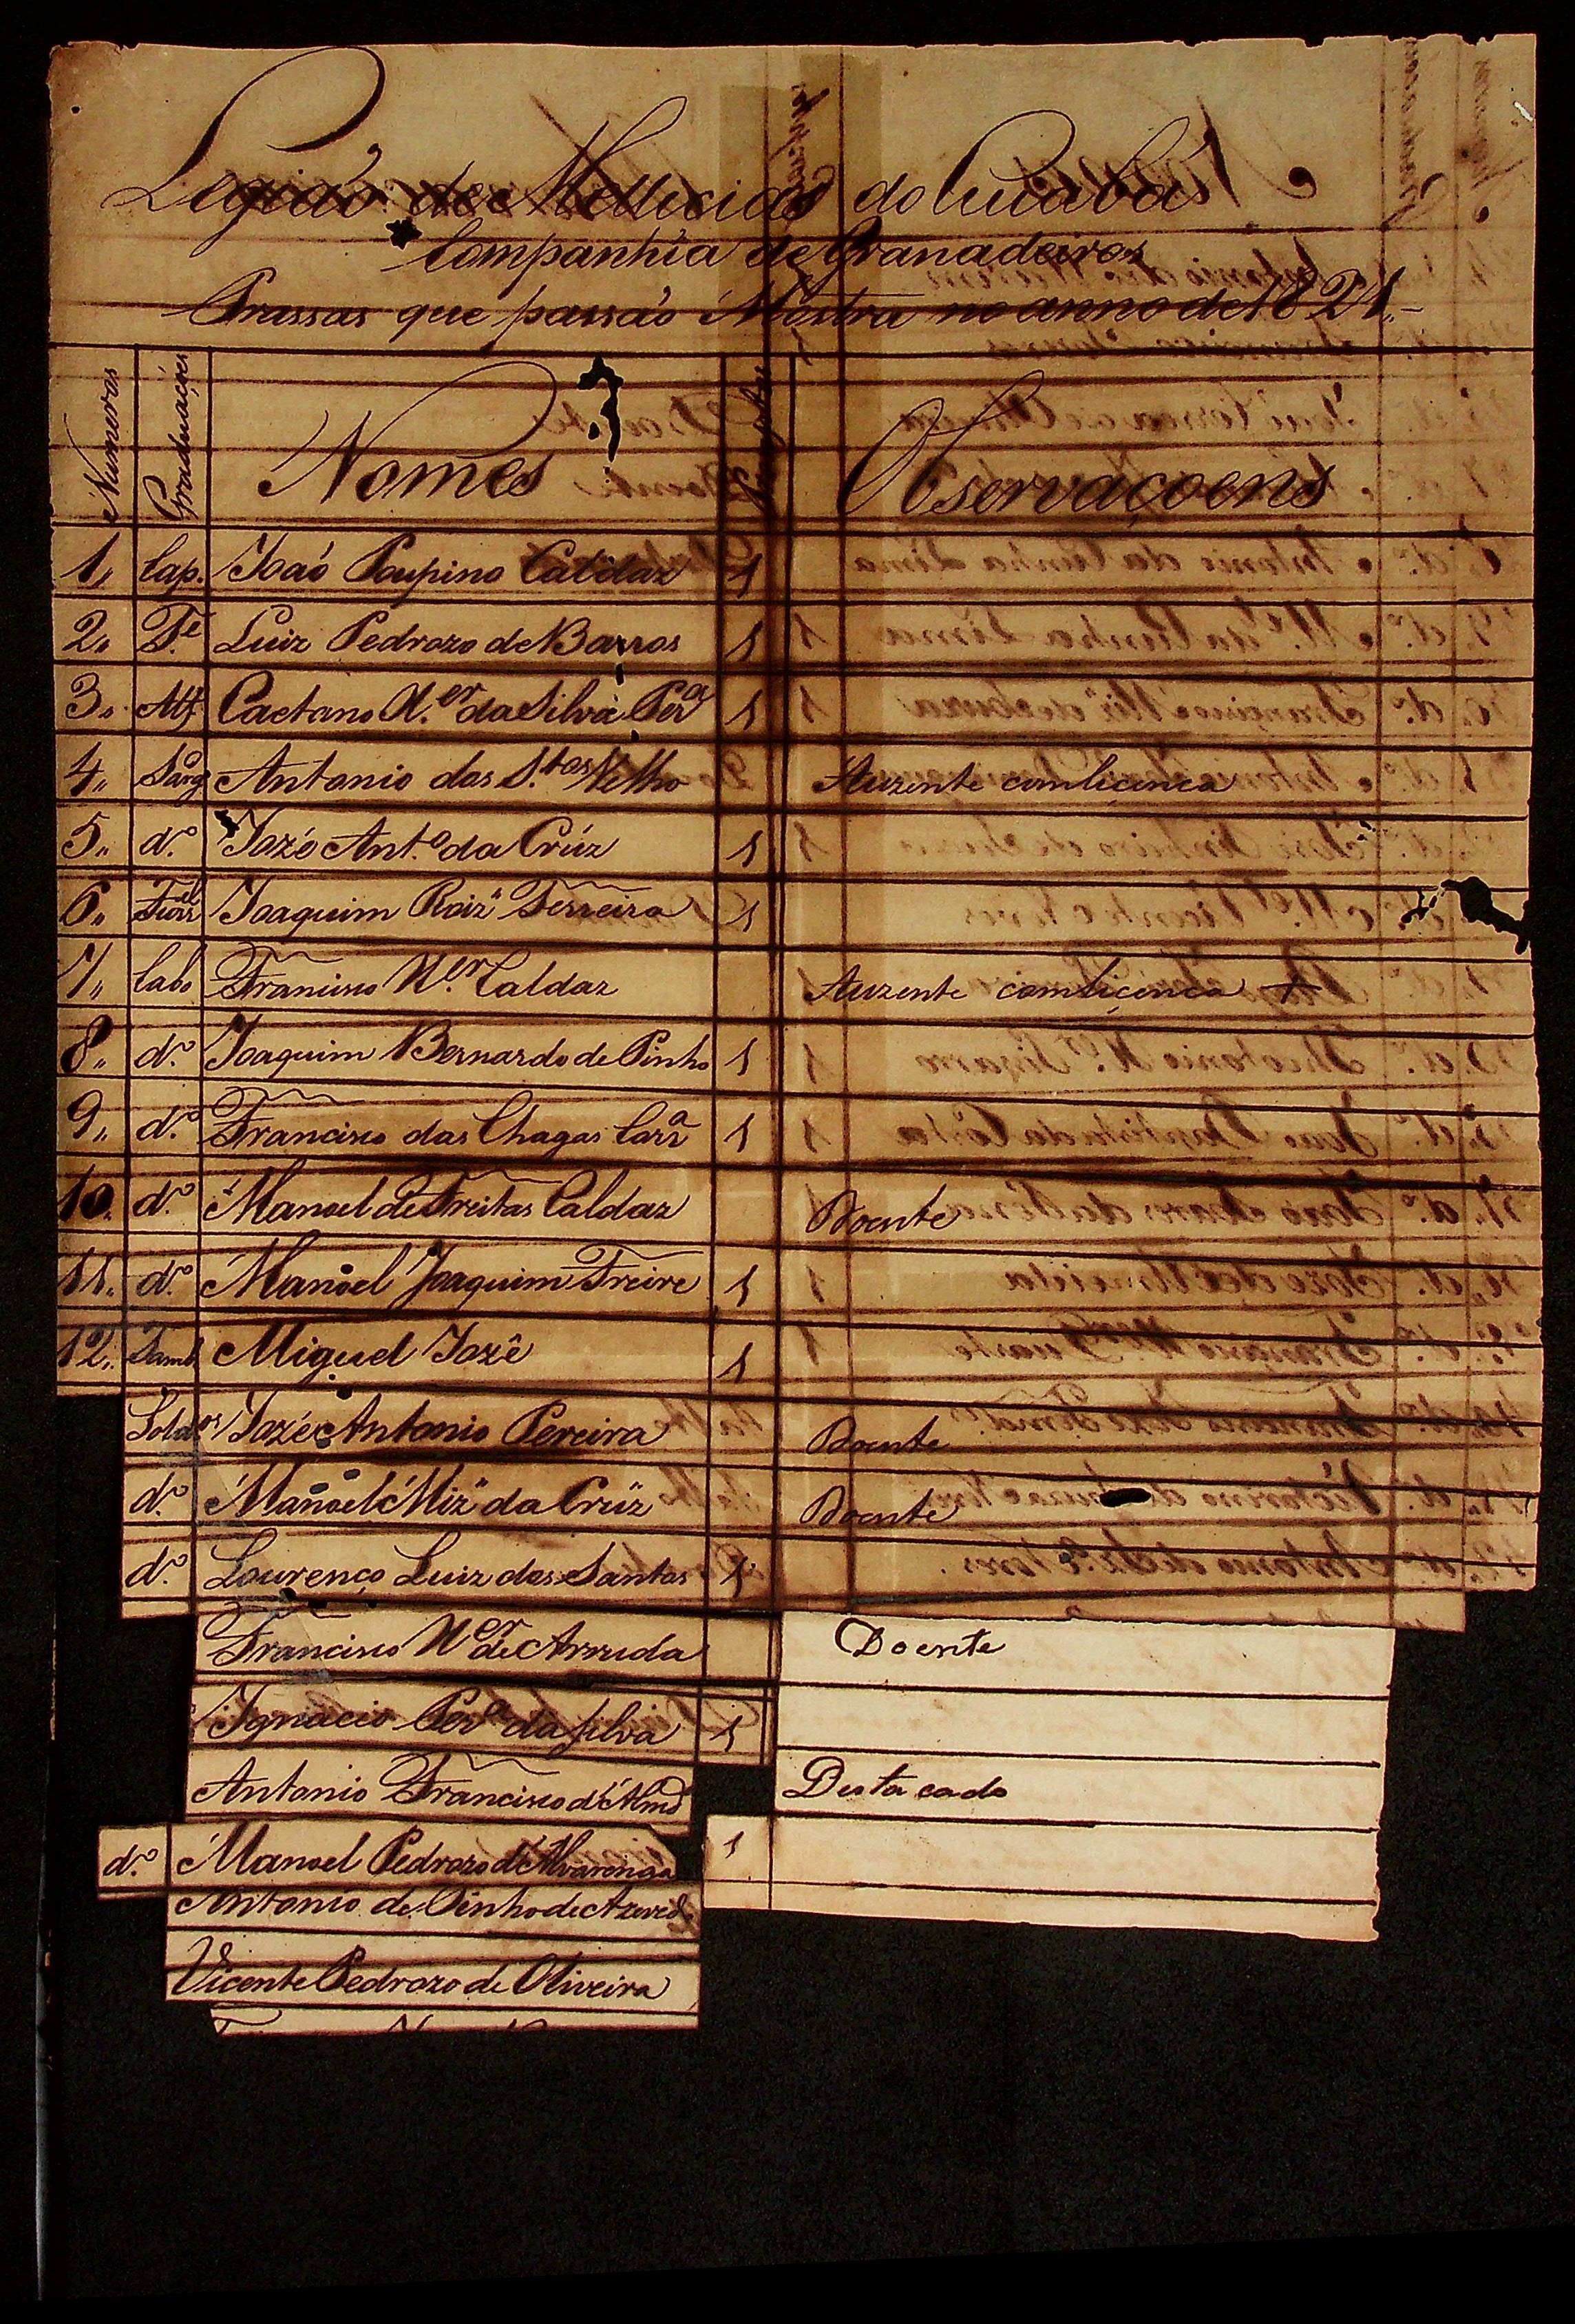 Legiaõ de Mellicias do Cuiabá
Companhia de Granadeiros
Prassas que passaõ Mostra no anno de 1821
Numeros Graduações Nomes Observaçoens
1,, Cap. Joaõ Poupino Caldaz 1
2,, T.e Luiz Pedrozo de Barros 1
3,, Alf. Caetano X.er da Silva Per.a 1
4,, Sarg.o Antonio dos S.tos Velho Auzente com licença
5,, d.o Jozé Ant.o da Crúz 1
6,, Furr.el Joaquim Roiz' Ferreira 1
7,, Cabo Francisco X.er Caldaz Auzente com licença +
8,, d.o Joaquim Bernardo de Pinho 1
9,, d.o Francisco das Chagas Corr.a 1
10,, d.o Manoel de Freitas Caldaz Doente
11,, d.o Manoel Joaquim Freire 1
12,, Tamb. Miguel Jozê 1
Sold.os Jozé Antonio Pereira Doente
d.o Manoel Miz' da Crúz Doente
d.o Lourenço Luiz dos Santos 1
Francisco X.er de Arruda Doente
Ignacio Per.a da Silva 1
Antonio Francisco d'Alm.d Destacado
d.o Manoel Pedrozo d'Alvarenga 1
Antonio de Pinho de Azevedo
Vicente Pedrozo de Oliveira